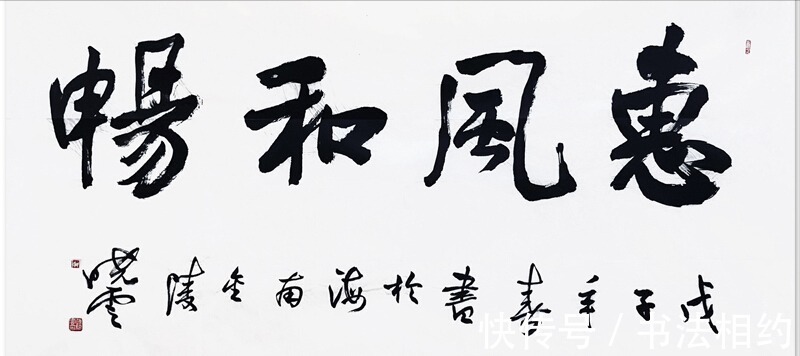 惠風和暢
戊子年春書於海南金陵曉雲
快传号 / 书法相约